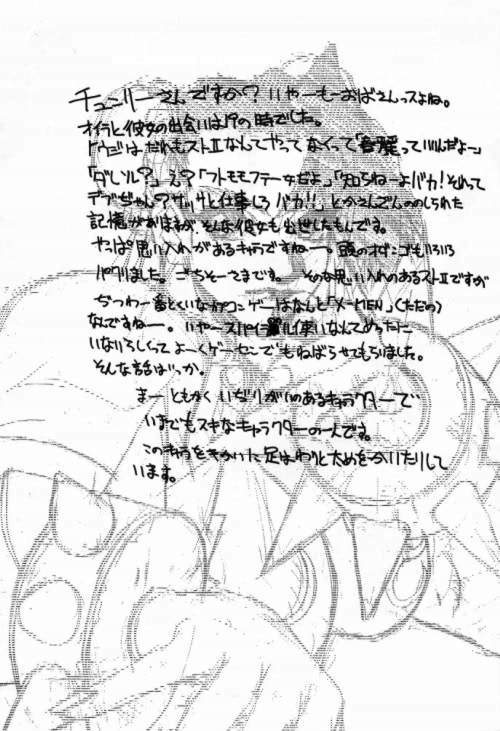 チュンリーさんですか？いやーもーおばさんっスよね。
オイラと彼女の出会いは19の時でした。
トウジはだれもストⅡなんてやってなくって「春麗っていいんだよー」
「ダレソレ？」え？「フトモモフテー女だよ」「知らねーよバカ！それって
デブじゃん？サッサと仕事しろバカ！！」とかさんざんののしられた
記憶がありますが、そんな彼女も出世したもんです。
やっぱ思い入れがあるキャラですねー。頭のオダンゴもいろいろ
パクリました。ごちそーさまです。そのな思い入れのあるストⅡですが
じつわ一番とくいなカプコンゲーはなんと「X-MEN」（ただの）
なんですねー。いやースパイラル使いなんてめったに
いないらしくってよーくゲーセンでもねばらせてもらいました。
そんな話はいっか。
まーともかくいぢりがいのあるキャラクターで
いまでもスキなキャラクターの一人です。
このキャラをきっかけに足はわりと太めをかいたりして
います。